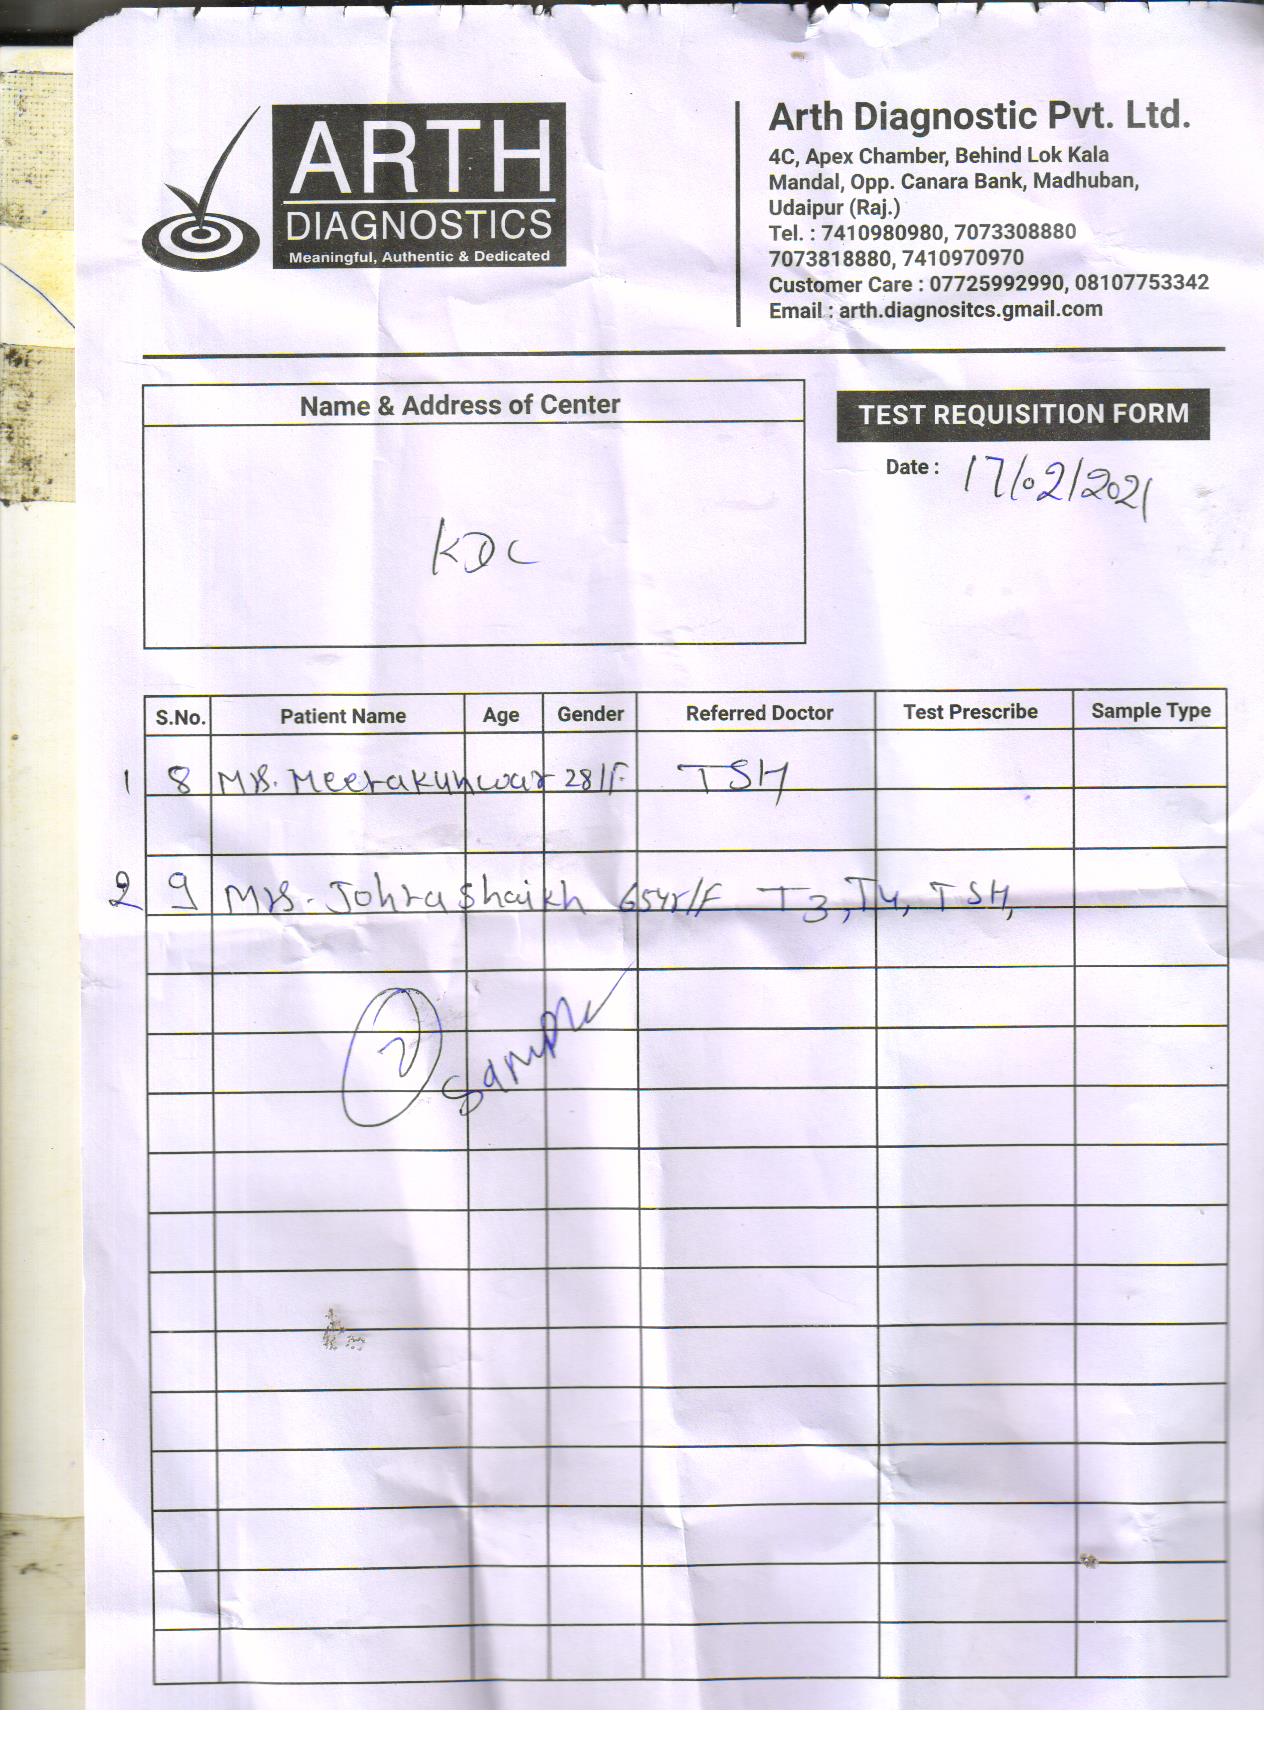 ARTH
DIAGNOSTICS
Meaningful, Authentic & Dedicated
Arth Diagnostic Pvt. Ltd.
4C, Apex Chamber, Behind Lok Kala
Mandal, Opp. Canara Bank, Madhuban,
Udaipur (Raj.)
Tel. : 7410980980, 7073308880
7073818880, 7410970970
Customer Care : 07725992990, 08107753342
Email : arth.diagnositcs.gmail.com
Name & Address of Center
KDC
TEST REQUISITION FORM
Date : 17/02/2021
S.No. Patient Name Age Gender Referred Doctor Test Prescribe Sample Type
1 8 MRS. Meerakunwar 28/F TSH
2 9 MRS. Johra Shaikh 65yr/F T3, T4, TSH,
2 Sample